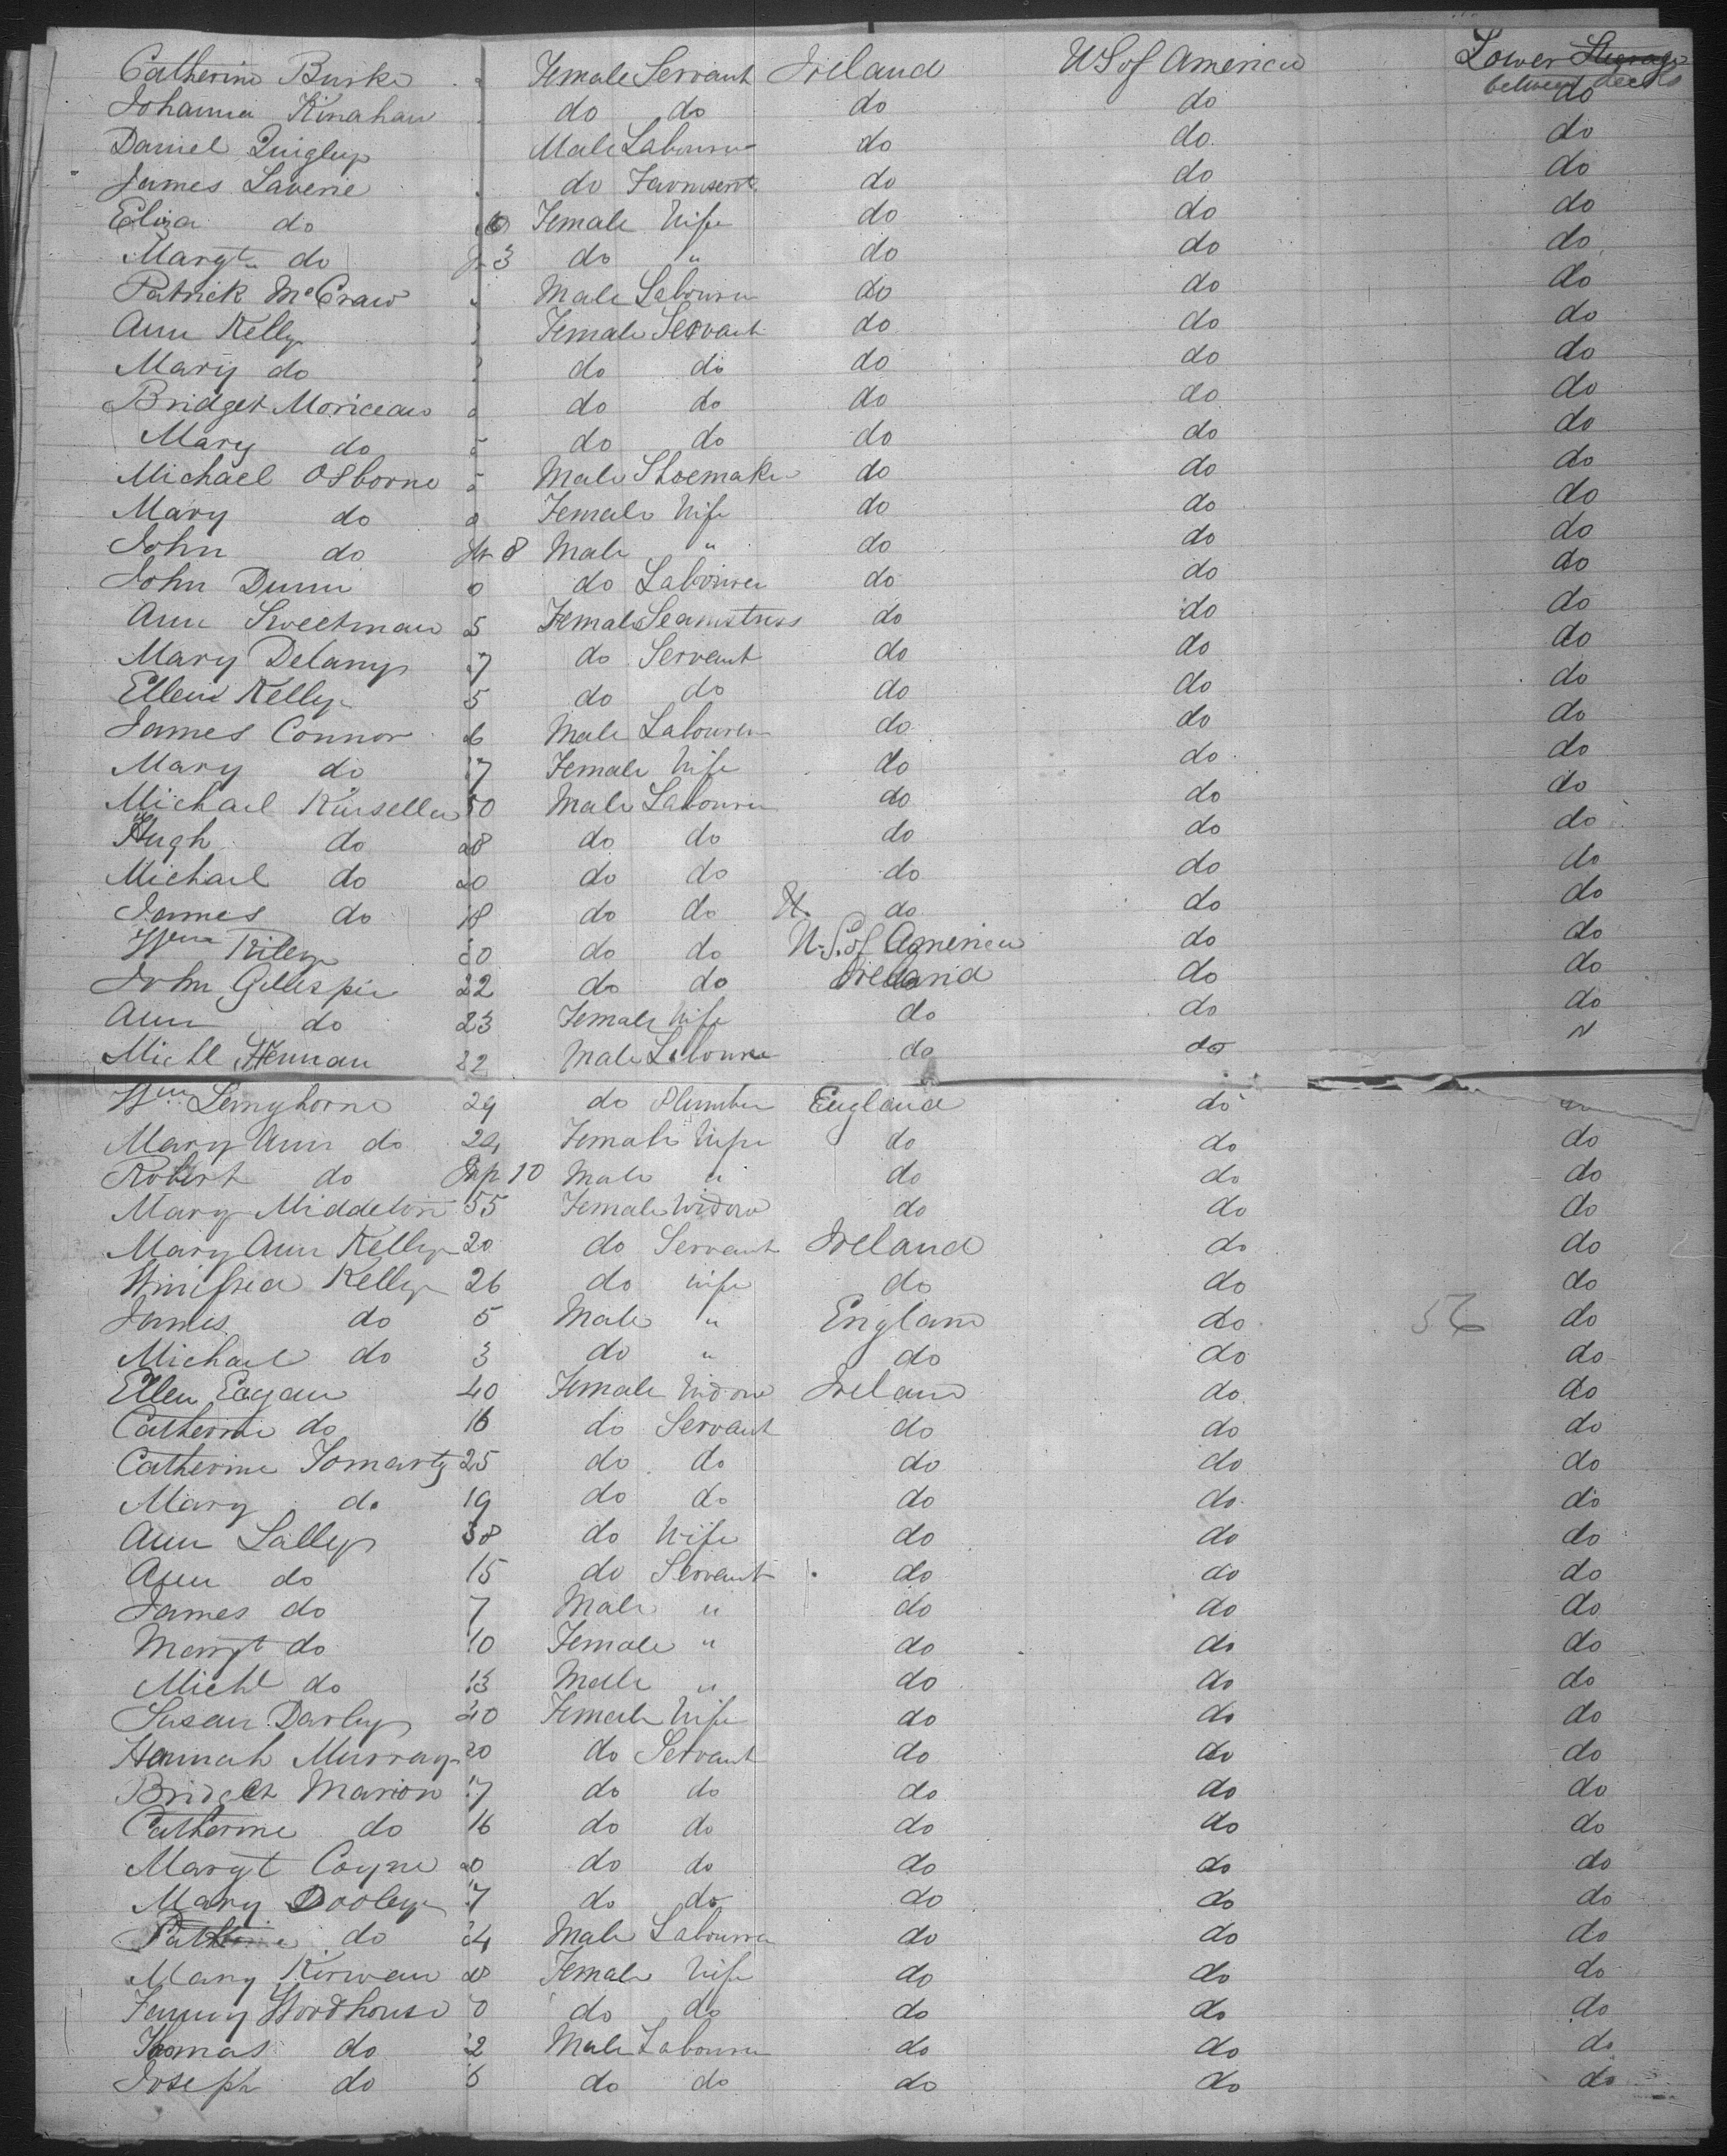 Catherine Burke Female Servant Ireland US of America Lower Steerage
between decks
Johanna Kinahan do do do do do
Daniel Quigley Male Labourer do do do
James Laverie do Farmsert do do do
Eliza do Female Wife do do do
Margt do 3 do " do do do
Patrick McCraw Male Labourer do do do
Ann Kelly Female Servant do do do
Mary do do do do do do
Bridget Moriceau do do do do do
Mary do do do do do do
Michael Osborne Male Shoemaker do do do
Mary do Female Wife do do do
John do 8 Male " do do do
John Dunn 0 do Labourer do do do
Ann Sweetman 5 Female Seamstress do do do
Mary Delany 7 do Servant do do do
Ellen Kelly 5 do do do do do
James Connor 6 Male Labourer do do do
Mary do 17 Female Wife do do do
Michael Kinsella 50 Male Labourer do do do
Hugh do 28 do do do do do
Michael do 20 do do do do do
James do 18 do do U. do do do
Wm Riley 20 do do U.S. of America do do
John Gillespie 22 do do Ireland do do
Ann do 23 Female Wife do do do
Michl Hennan 22 Male Labourer do do
Wm Lemyhorne 29 do Plumber England do
Mary Ann do 24 Female Wife do do do
Robert do Inf 10 Male " do do do
Mary Middleton 55 Female Widow do do do
Mary Ann Kelly 20 do Servant Ireland do do
Winifred Kelly 26 do Wife do do do
James do 5 Male " England do 56 do
Michael do 3 do " do do do
Ellen Eagan 40 Female Widow Ireland do do
Catherine do 16 do Servant do do do
Catherine Fomarty 25 do do do do do
Mary do 19 do do do do do
Ann Lally 38 do Wife do do do
Ann do 15 do Servant do do do
James do 7 Male " do do do
Margt do 10 Female " do do do
Michl do 13 Male " do do do
Susan Darley 40 Female Wife do do do
Hannah Murray 20 do Servant do do do
Bridget Marion 17 do do do do do
Catherine do 16 do do do do do
Margt Coyne 20 do do do do do
Mary Dooley 7 do do do do do
Pat do 24 Male Labourer do do do
Mary Kirwan 28 Female Wife do do do
Fanny Woodhouse 0 do do do do do
Thomas do 2 Male Labourer do do do
Joseph do do do do do do